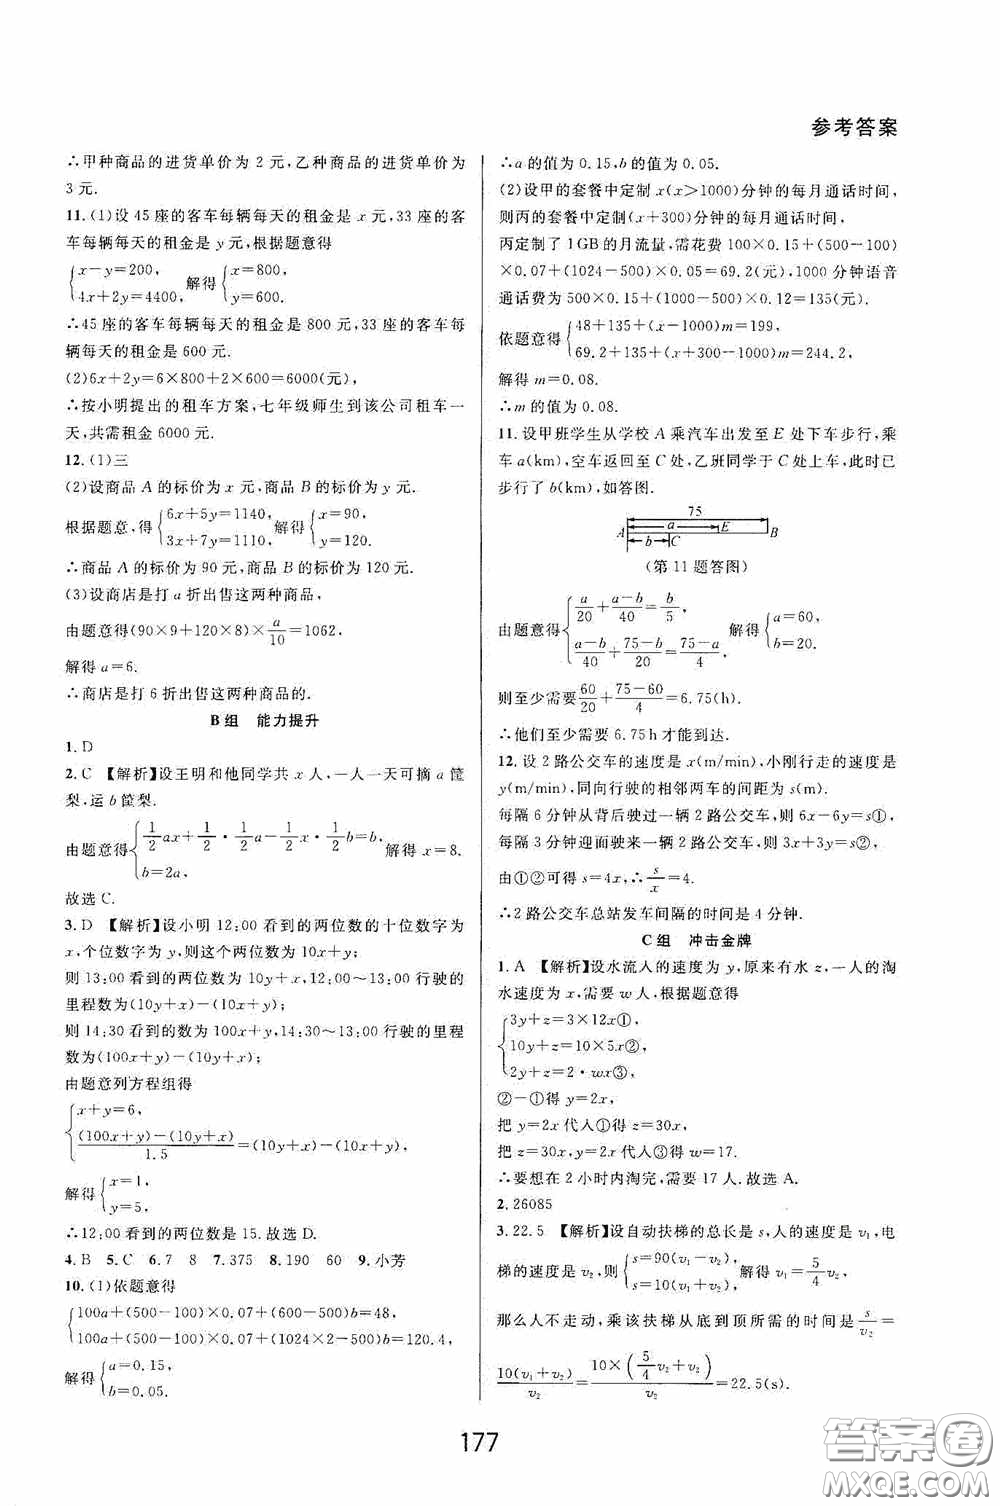 参考答案
∴甲种商品的进货单价为 2 元,乙种商品的进货单价为
3 元.
11. (1)设 45 座的客车每辆每天的租金是 x 元,33 座的客
车每辆每天的租金是 y 元,根据题意得
{x-y=200, 4x+2y=4400, 解得 {x=800, y=600.
∴45 座的客车每辆每天的租金是 800 元,33 座的客车每
辆每天的租金是 600 元.
(2)6x+2y=6×800+2×600=6000(元),
∴按小明提出的租车方案,七年级师生到该公司租车一
天,共需租金 6000 元.
12. (1)三
(2)设商品 A 的标价为 x 元,商品 B 的标价为 y 元.
根据题意,得 {6x+5y=1140, 3x+7y=1110, 解得 {x=90, y=120.
∴商品 A 的标价为 90 元,商品 B 的标价为 120 元.
(3)设商店是打 a 折出售这两种商品,
由题意得(90×9+120×8)×a/10=1062,
解得 a=6.
∴商店是打 6 折出售这两种商品的.
B 组 能力提升
1. D
2. C 【解析】设王明和他同学共 x 人,一人一天可摘 a 筐
梨,运 b 筐梨.
由题意得 {1/2 ax+1/2·1/2 a-1/2·1/2 b=b, b=2a, 解得 x=8.
故选 C.
3. D 【解析】设小明 12:00 看到的两位数的十位数字为
x,个位数字为 y,则这个两位数为 10x+y;
则 13:00 看到的两位数为 10y+x,12:00~13:00 行驶的
里程数为(10y+x)-(10x+y);
则 14:30 看到的数为 100x+y,14:30~13:00 行驶的里程
数为(100x+y)-(10y+x);
由题意列方程组得
{x+y=6, ((100x+y)-(10y+x))/1.5=(10y+x)-(10x+y),
解得 {x=1, y=5.
∴12:00 看到的两位数是 15.故选 D.
4. B 5. C 6. 7 8 7. 375 8. 190 60 9. 小芳
10. (1)依题意得
{100a+(500-100)×0.07+(600-500)b=48,
100a+(500-100)×0.07+(1024×2-500)b=120.4,
解得 {a=0.15, b=0.05.
∴a 的值为 0.15,b 的值为 0.05.
(2)设甲的套餐中定制 x(x>1000)分钟的每月通话时间,
则丙的套餐中定制(x+300)分钟的每月通话时间,
丙定制了 1GB 的月流量,需花费 100×0.15+(500-100)
×0.07+(1024-500)×0.05=69.2(元),1000 分钟语音
通话费为 500×0.15+(1000-500)×0.12=135(元).
依题意得 {48+135+(x-1000)m=199, 69.2+135+(x+300-1000)m=244.2,
解得 m=0.08.
∴m 的值为 0.08.
11. 设甲班学生从学校 A 乘汽车出发至 E 处下车步行,乘
车 a(km),空车返回至 C 处,乙班同学于 C 处上车,此时已
步行了 b(km),如答图.
75
A a E B
b C
(第 11 题答图)
由题意得 {a/20+(a-b)/40=b/5, (a-b)/40+(75-b)/20=(75-a)/4, 解得 {a=60, b=20.
则至少需要60/20+(75-60)/4=6.75(h).
∴他们至少需要 6.75h 才能到达.
12. 设 2 路公交车的速度是 x(m/min),小刚行走的速度是
y(m/min),同向行驶的相邻两车的间距为 s(m).
每隔 6 分钟从背后驶过一辆 2 路公交车,则 6x-6y=s①
每隔 3 分钟迎面驶来一辆 2 路公交车,则 3x+3y=s②,
由①②可得 s=4x,∴s/x=4.
∴2 路公交车总站发车间隔的时间是 4 分钟.
C 组 冲击金牌
1. A 【解析】设水流入的速度为 y,原来有水 z,一人的淘
水速度为 x,需要 w 人,根据题意得
{3y+z=3×12x①,
10y+z=10×5x②,
2y+z=2·wx③,
②-①得 y=2x,
把 y=2x 代入①得 z=30x,
把 z=30x,y=2x 代入③得 w=17.
∴要想在 2 小时内淘完,需要 17 人.故选 A.
2. 26085
3. 22.5 【解析】设自动扶梯的总长是 s,人的速度是 v₁,电
梯的速度是 v₂,则 {s=90(v₁-v₂) s=10(v₁+v₂) 解得 v₁=5/4 v₂,
那么人不走动,乘该扶梯从底到顶所需的时间是 s/v₂=
10(v₁+v₂)/v₂=10×(5/4 v₂+v₂)/v₂=22.5(s).
177
答案卷
MXQE.COM